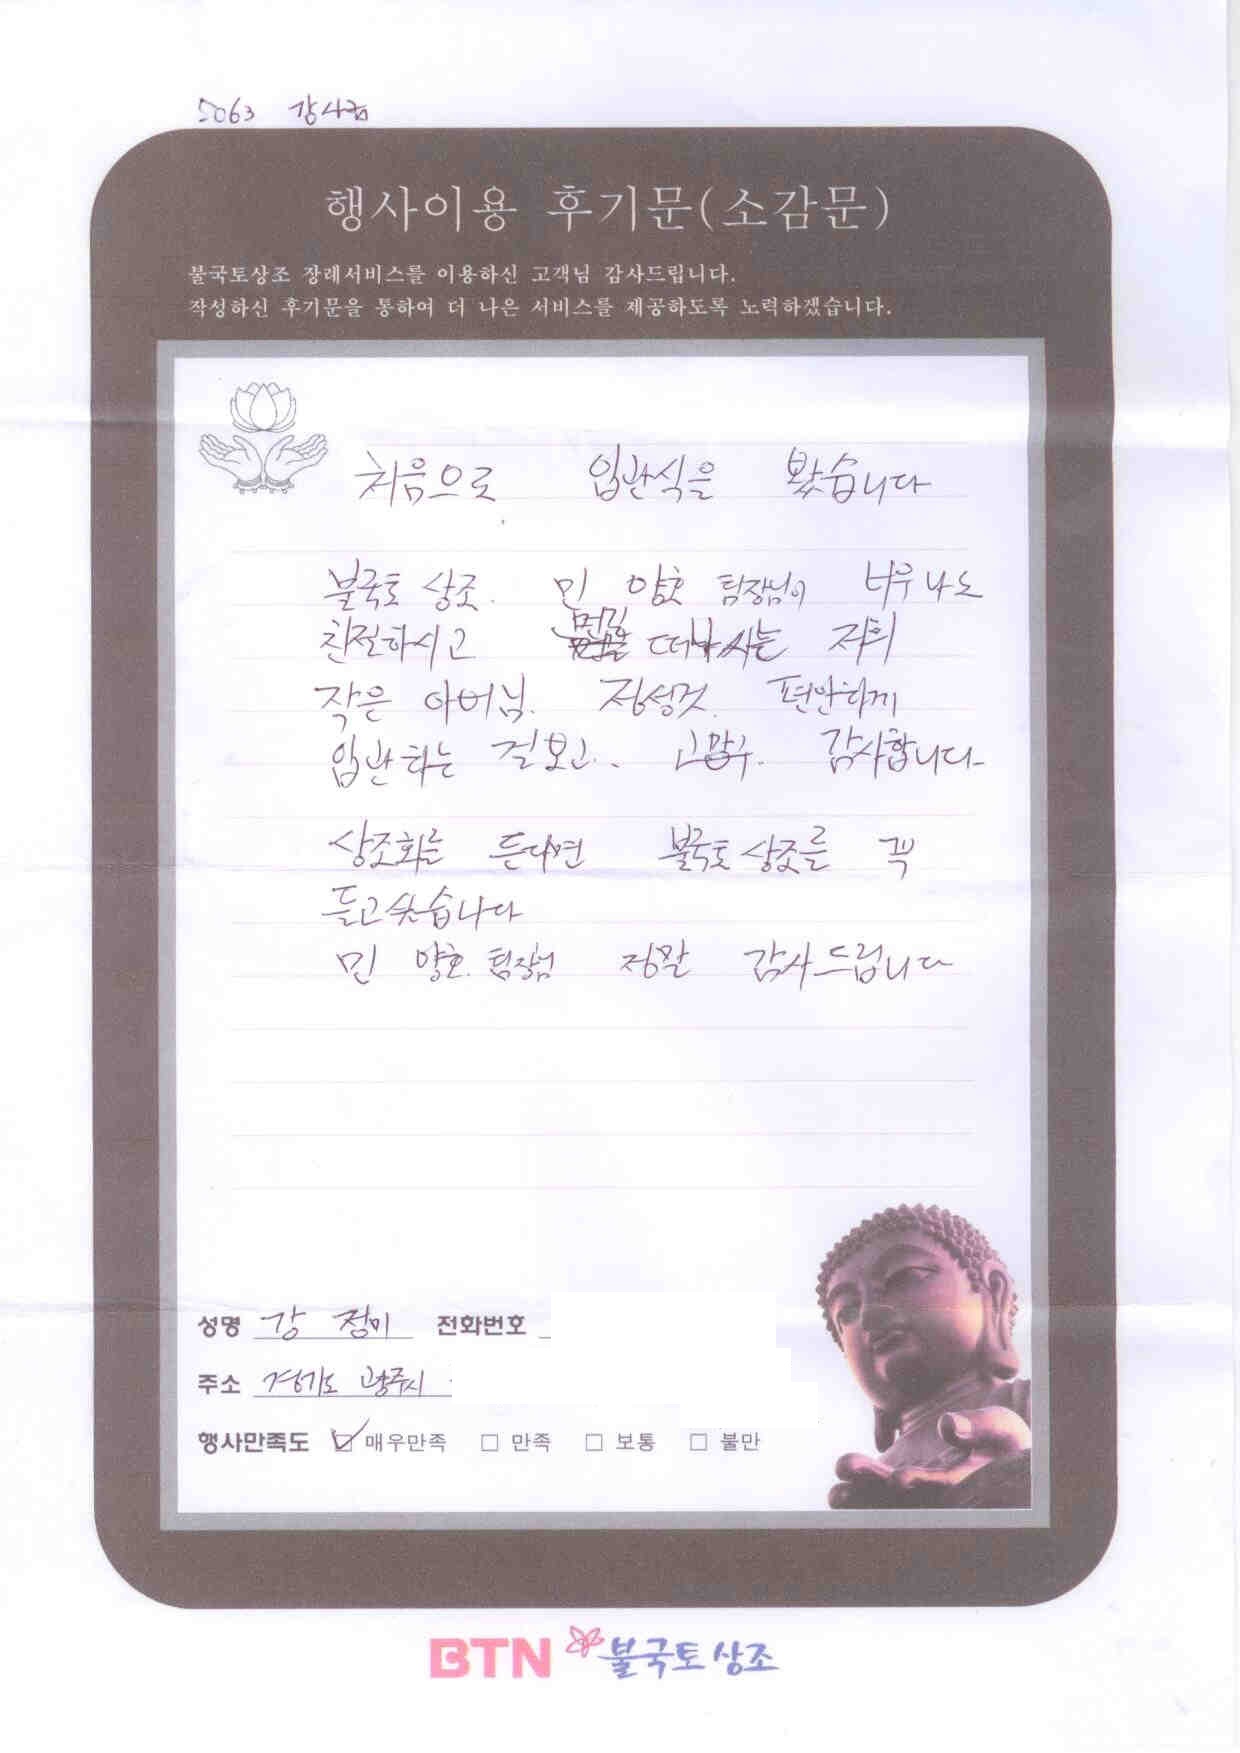 5063 강사금
행사이용 후기문(소감문)
불국토상조 장례서비스를 이용하신 고객님 감사드립니다.
작성하신 후기문을 통하여 더 나은 서비스를 제공하도록 노력하겠습니다.
처음으로 입관식을 봤습니다
불국토 상조. 민 양호 팀장님이 너무나도
친절하시고 먼길 떠나시는 저희
작은 아버님. 정성것. 편안하게
입관하는 걸보고.. 고맙구. 감사합니다-
상조회를 든다면 불국토 상조를 꼭
들고싶습니다
민 양호. 팀장님 정말 감사드립니다
성명 강 점미 전화번호
주소 경기도 광주시
행사만족도 ☑ 매우만족 □ 만족 □ 보통 □ 불만
BTN 불국토상조